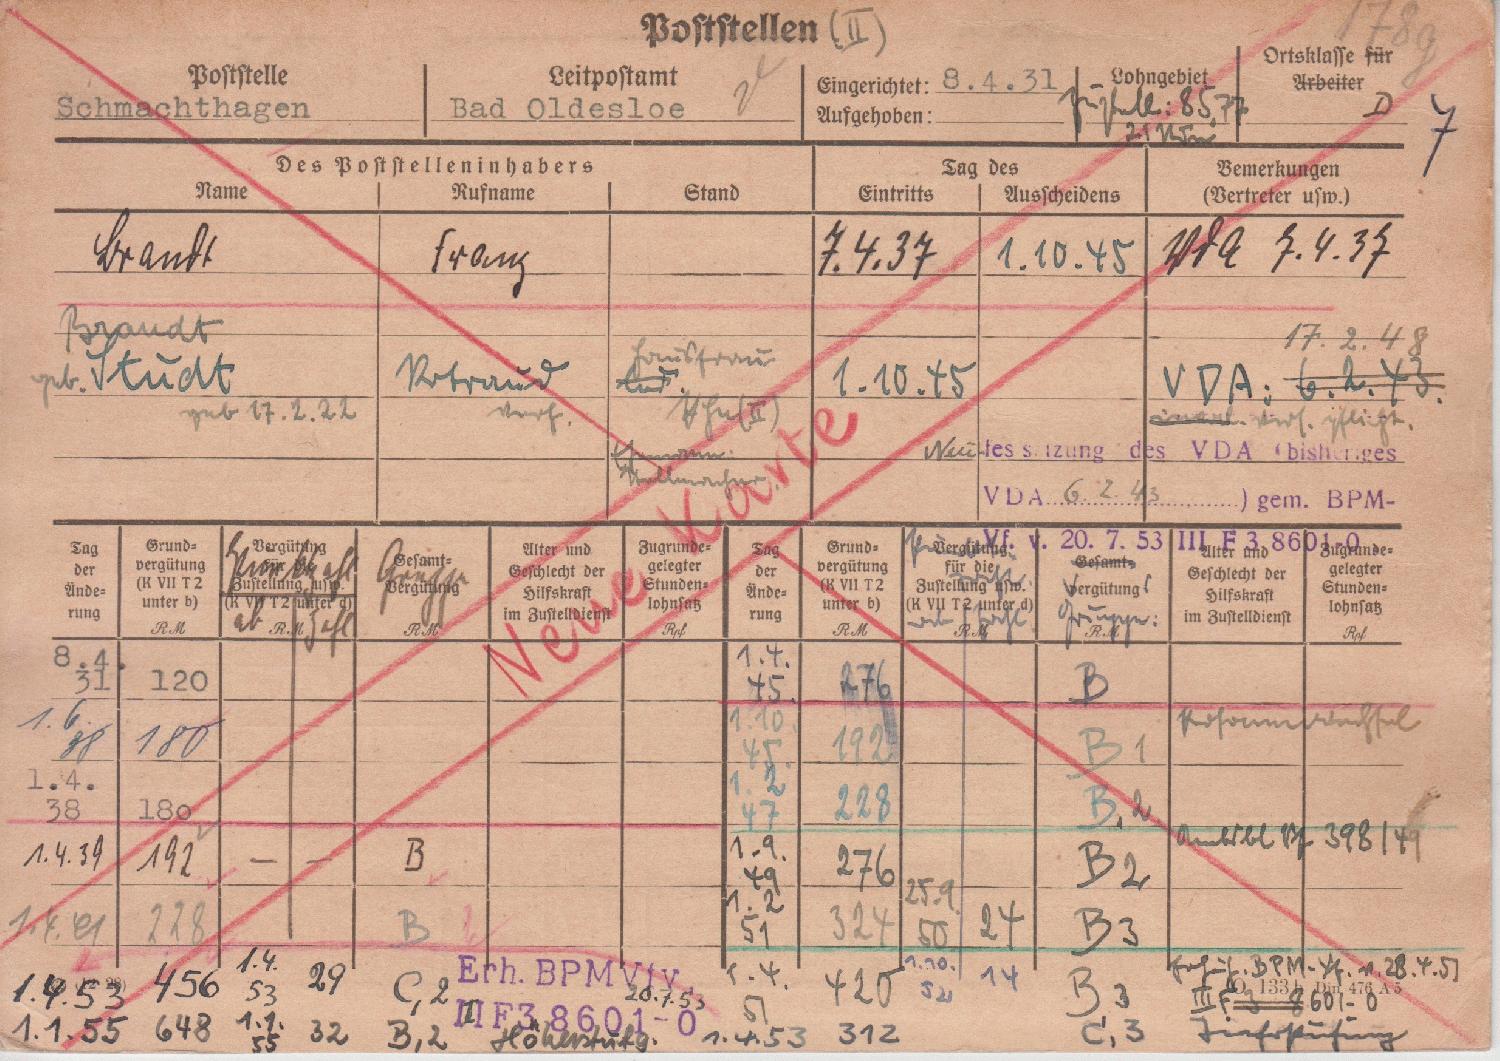 Poststellen (II)
178g
Poststelle
Schmachthagen
Leitpostamt
Bad Oldesloe
Eingerichtet: 8.4.31
Aufgehoben:
Lohngebiet
85,77
Ortsklasse für
Arbeiter
D
7
Des Poststelleninhabers
Tag des
Bemerkungen
(Vertreter usw.)
Name
Rufname
Stand
Eintritts
Ausscheidens
Brandt
Franz
7.4.37
1.10.45
VDA 7.4.37
Brandt
geb. Studt
Rotraud
Hausfrau
led.
1.10.45
17.2.48
VDA: 6.2.43.
geb 17.2.22
verh.
Phn (II)
vers. pflicht.
Ehemann:
Neufestsetzung des VDA (bisheriges
VDA 6.2.43 ) gem. BPM-
Vf. v. 20. 7. 53 III F 3 8601-0
Neue Karte
Tag
der
Ände-
rung
Grund-
vergütung
(K VII T 2
unter b)
RM
Vergütung
Zustellung usw.
(K VII T 2 unter d)
RM
ab
Zahl
Gesamt-
Vergütung
Gruppe
RM
Alter und
Geschlecht der
Hilfskraft
im Zustelldienst
Zugrunde-
gelegter
Stunden-
lohnsatz
Rpf
Tag
der
Ände-
rung
Grund-
vergütung
(K VII T 2
unter b)
RM
Vergütung
für die
Zustellung usw.
(K VII T 2 unter d)
RM
Gesamt-
vergütung
Gruppe:
RM
Alter und
Geschlecht der
Hilfskraft
im Zustelldienst
Zugrunde-
gelegter
Stunden-
lohnsatz
Rpf
8.4.31 120
1.6.38 180
1.4.38 180
1.4.39 192 — — B
1.4.41 228 B
1.4.53 456 1.4.53 29 C,2
Erh. BPMVfv.
20.7.53
III F3 8601-0
1.1.55 648 1.1.55 32 B,2 Höherstufg.
1.4.45. 276 B
1.10.45. 192 B 1 Personenwechsel
1.2.47 228 B,2
1.9.49 276 B2 Amtsbl Vf 398/49
1.2.51 324 25.9.50 24 B3
1.4.51 420 1.10.52 14 B3
BPM-Vf. v. 28.4.51
III F 3 8601-0
Din 476 A 5
1.4.53 312 C,3